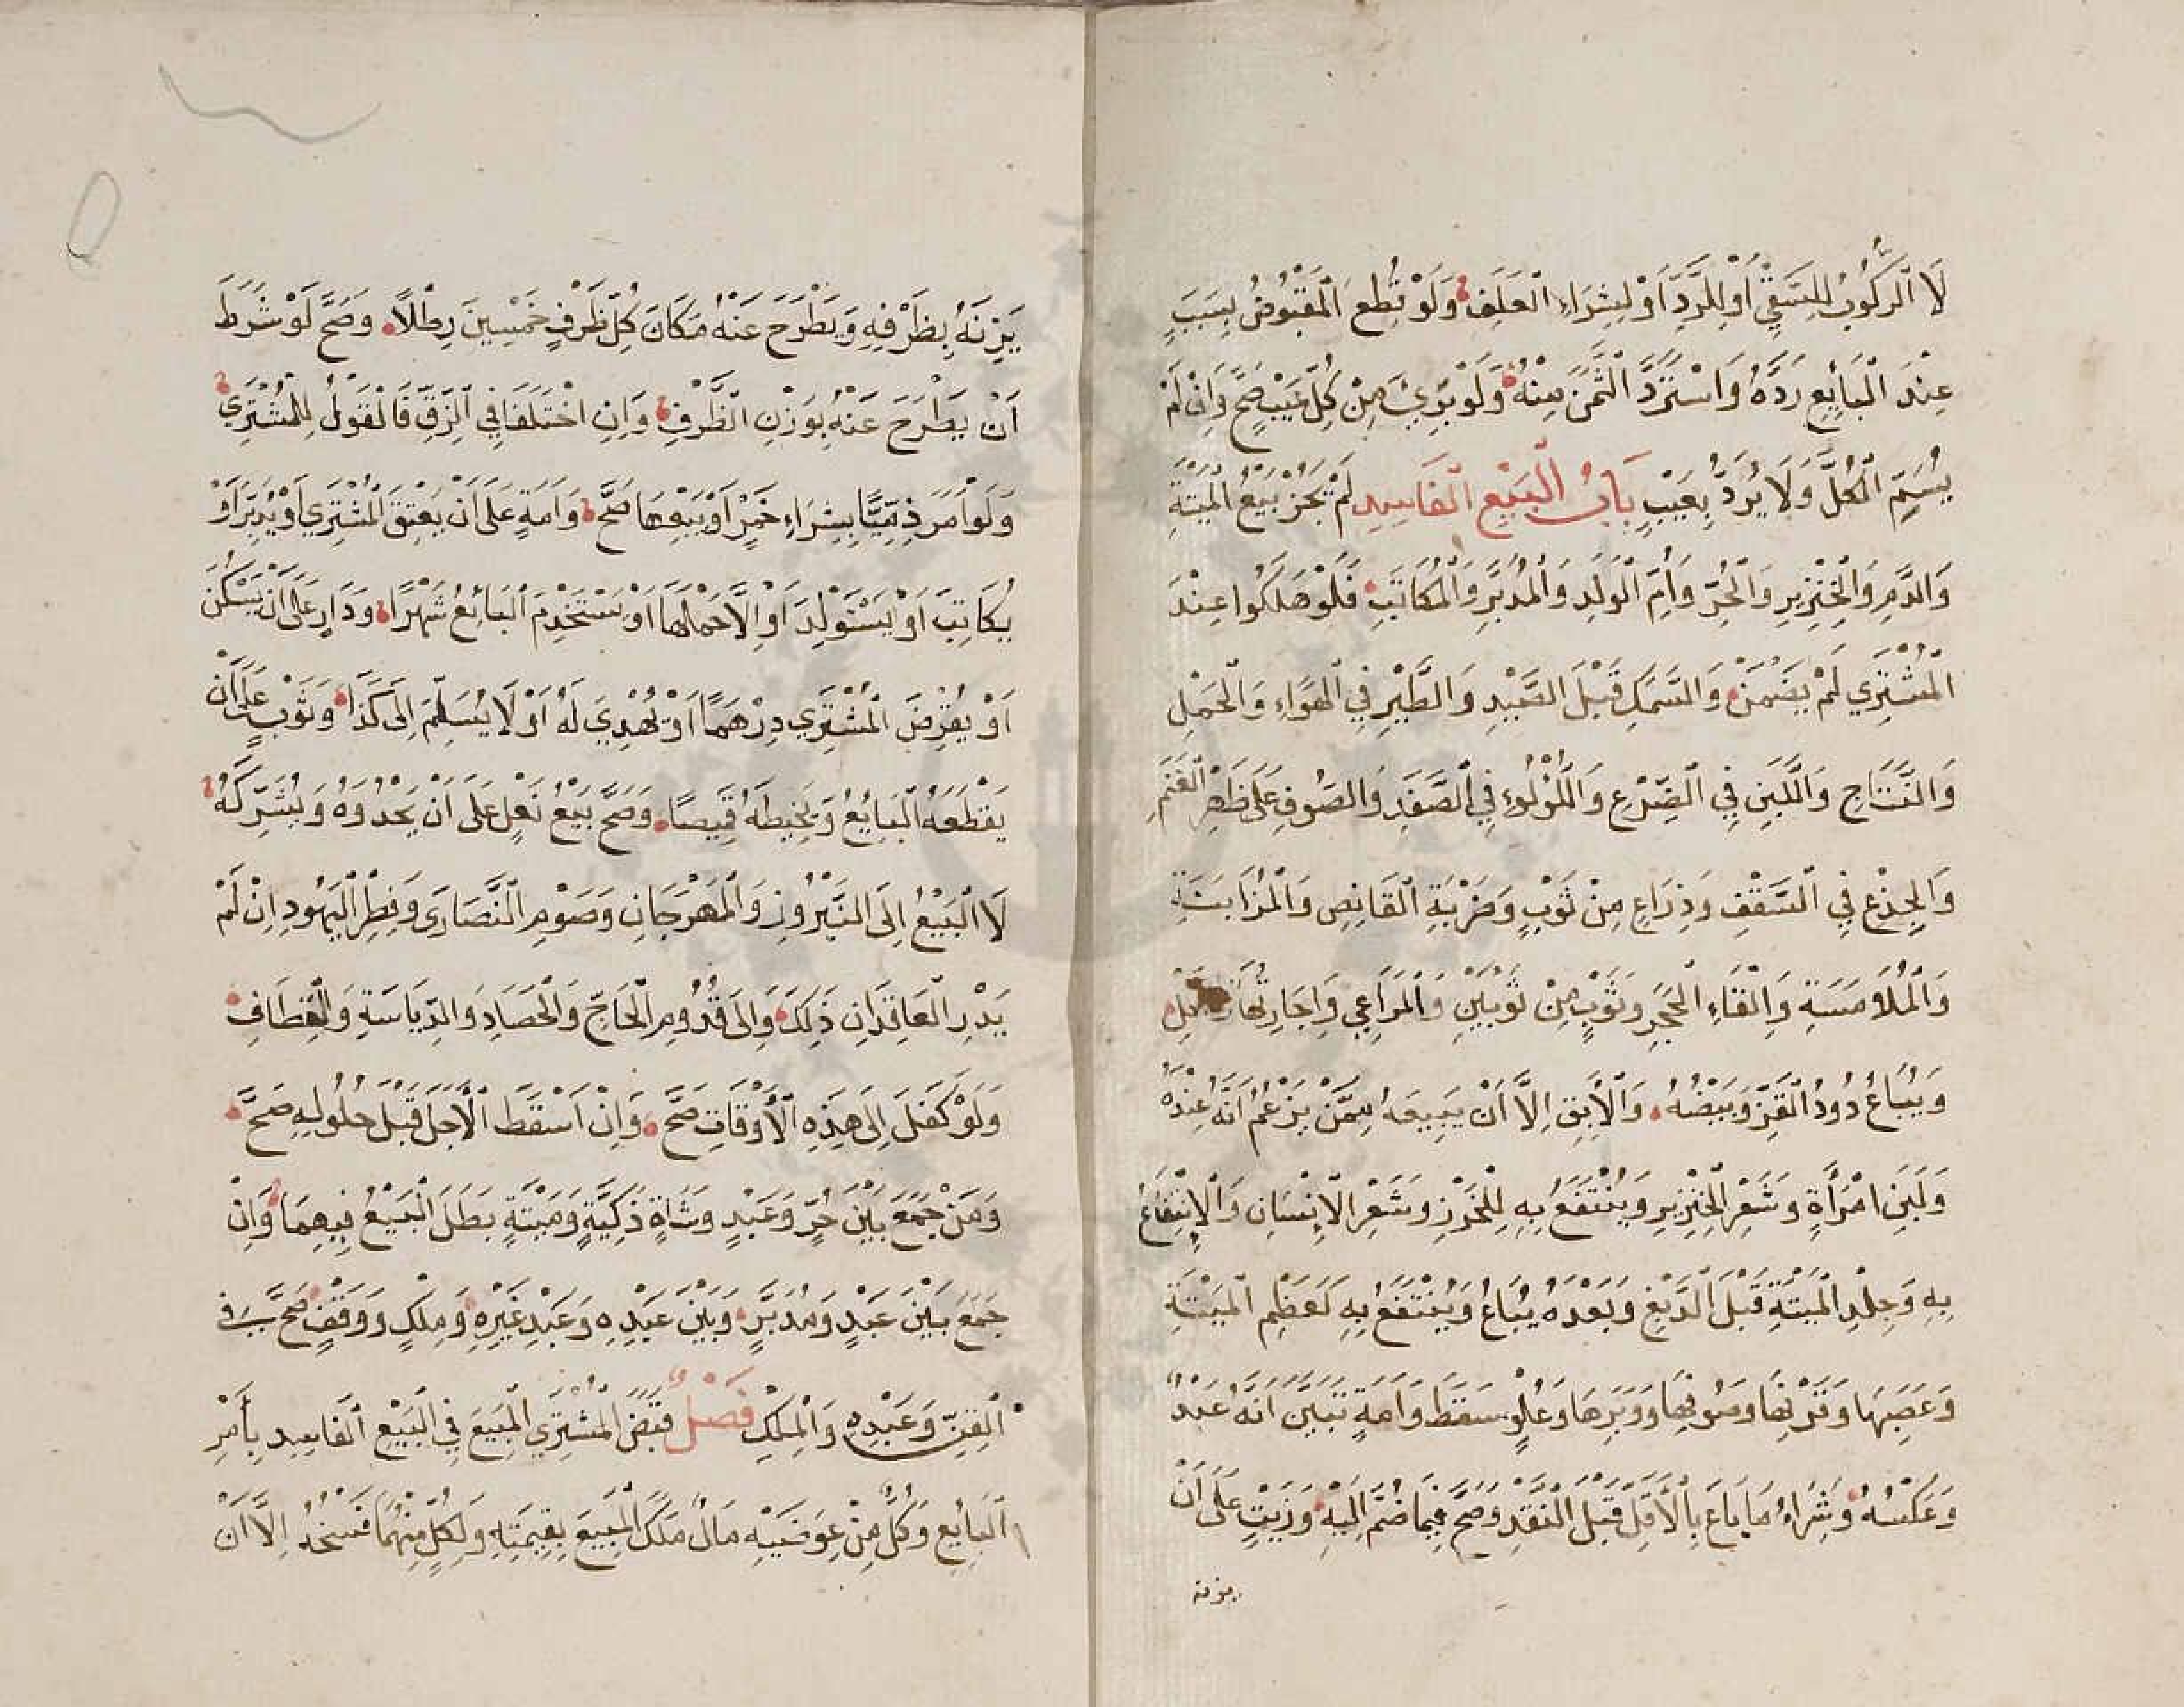 لَا الرُّكُوبُ لِلسَّقْيِ أَوْ لِلرَّدِّ أَوْ لِشِرَاءِ الْعَلَفِ وَلَوْ قُطِعَ الْمَقْبُوضُ بِسَبَبٍ
عِنْدَ الْبَائِعِ رَدَّهُ وَاسْتَرَدَّ الثَّمَنَ مِنْهُ وَلَوْ بَرِئَ مِنْ كُلِّ عَيْبٍ صَحَّ وَإِنْ لَمْ
يُسَمِّ الْكُلَّ وَلَا يُرَدُّ بِعَيْبٍ بَابُ الْبَيْعِ الْفَاسِدِ لَمْ يَجُزْ بَيْعُ الْمَيْتَةِ
وَالدَّمِ وَالْخِنْزِيرِ وَالْحُرِّ وَأُمِّ الْوَلَدِ وَالْمُدَبَّرِ وَالْمُكَاتَبِ فَلَوْ هَلَكُوا عِنْدَ
الْمُشْتَرِي لَمْ يَضْمَنْ وَالسَّمَكِ قَبْلَ الصَّيْدِ وَالطَّيْرِ فِي الْهَوَاءِ وَالْحَمْلِ
وَالنَّتَاجِ وَاللَّبَنِ فِي الضَّرْعِ وَاللُّؤْلُؤِ فِي الصَّدَفِ وَالصُّوفِ عَلَى ظَهْرِ الْغَنَمِ
وَالْجِذْعِ فِي السَّقْفِ وَذِرَاعٍ مِنْ ثَوْبٍ وَضَرْبَةِ الْقَانِصِ وَالْمُزَابَنَةِ
وَالْمُلَامَسَةِ وَإِلْقَاءِ الْحَجَرِ وَثَوْبٍ مِنْ ثَوْبَيْنِ وَالْمَرَاعِي وَإِجَارَتُهَا
وَيُبَاعُ دُودُ الْقَزِّ وَبَيْضُهُ وَالْآبِقِ إِلَّا أَنْ يَبِيعَهُ مِمَّنْ يَزْعُمُ أَنَّهُ عِنْدَهُ
وَلَبَنِ امْرَأَةٍ وَشَعْرِ الْخِنْزِيرِ وَيُنْتَفَعُ بِهِ لِلْخَرْزِ وَشَعْرِ الْإِنْسَانِ وَالْإِنْتِفَاعُ
بِهِ وَجِلْدِ الْمَيْتَةِ قَبْلَ الدَّبْغِ وَبَعْدَهُ يُبَاعُ وَيُنْتَفَعُ بِهِ كَعَظْمِ الْمَيْتَةِ
وَعَصَبِهَا وَقَرْنِهَا وَصُوفِهَا وَوَبَرِهَا وَعُلُوٍّ سَقَطَ وَأَمَةٍ تَبَيَّنَ أَنَّهُ عَبْدٌ
وَعَكْسُهُ وَشِرَاءُ مَا بَاعَ بِالْأَقَلِّ قَبْلَ النَّقْدِ وَصَحَّ فِيمَا ضُمَّ إِلَيْهِ وَزَيْتٍ عَلَى أَنْ
يزنه
يَزِنَهُ بِظَرْفِهِ وَيَطْرَحَ عَنْهُ مَكَانَ كُلِّ ظَرْفٍ خَمْسِينَ رِطْلًا وَصَحَّ لَوْ شَرَطَ
أَنْ يَطْرَحَ عَنْهُ بِوَزْنِ الظَّرْفِ وَإِنِ اخْتَلَفَا فِي الزِّقِّ فَالْقَوْلُ لِلْمُشْتَرِي
وَلَوْ أَمَرَ ذِمِّيًّا بِشِرَاءِ خَمْرٍ أَوْ بَيْعِهَا صَحَّ وَأَمَةٍ عَلَى أَنْ يَعْتِقَ الْمُشْتَرِي أَوْ يُدَبِّرَ أَوْ
يُكَاتِبَ أَوْ يَسْتَوْلِدَ أَوْ إِلَّا حَمْلَهَا أَوْ يَسْتَخْدِمَ الْبَائِعُ شَهْرًا وَدَارٍ عَلَى أَنْ يَسْكُنَ
أَوْ يُقْرِضَ الْمُشْتَرِي دِرْهَمًا أَوْ يُهْدِيَ لَهُ أَوْ لَا يُسَلِّمَ إِلَى كَذَا وَثَوْبٍ عَلَى أَنْ
يَقْطَعَهُ الْبَائِعُ وَيَخِيطَهُ قَمِيصًا وَصَحَّ بَيْعُ نَعْلٍ عَلَى أَنْ يَحْذُوَهُ وَيُشَرِّكَهُ
لَا الْبَيْعُ إِلَى النَّيْرُوزِ وَالْمَهْرَجَانِ وَصَوْمِ النَّصَارَى وَفِطْرِ الْيَهُودِ إِنْ لَمْ
يَدْرِ الْعَاقِدَانِ ذَلِكَ وَإِلَى قُدُومِ الْحَاجِّ وَالْحَصَادِ وَالدِّيَاسَةِ وَالْقِطَافِ
وَلَوْ كَفَلَ إِلَى هَذِهِ الْأَوْقَاتِ صَحَّ وَإِنْ أَسْقَطَ الْأَجَلَ قَبْلَ حُلُولِهِ صَحَّ
وَمَنْ جَمَعَ بَيْنَ حُرٍّ وَعَبْدٍ وَشَاةٍ ذَكِيَّةٍ وَمَيْتَةٍ بَطَلَ الْبَيْعُ فِيهِمَا وَإِنْ
جَمَعَ بَيْنَ عَبْدٍ وَمُدَبَّرٍ وَبَيْنَ عَبْدِهِ وَعَبْدِ غَيْرِهِ وَمِلْكٍ وَوَقْفٍ صَحَّ فِي
الْقِنِّ وَعَبْدِهِ وَالْمِلْكِ فَصْلٌ قَبَضَ الْمُشْتَرِي الْمَبِيعَ فِي الْبَيْعِ الْفَاسِدِ بِأَمْرِ
الْبَائِعِ وَكُلٌّ مِنْ عِوَضَيْهِ مَالٌ مَلَكَ الْمَبِيعَ بِقِيمَتِهِ وَلِكُلٍّ مِنْهُمَا فَسْخُهُ إِلَّا أَنْ